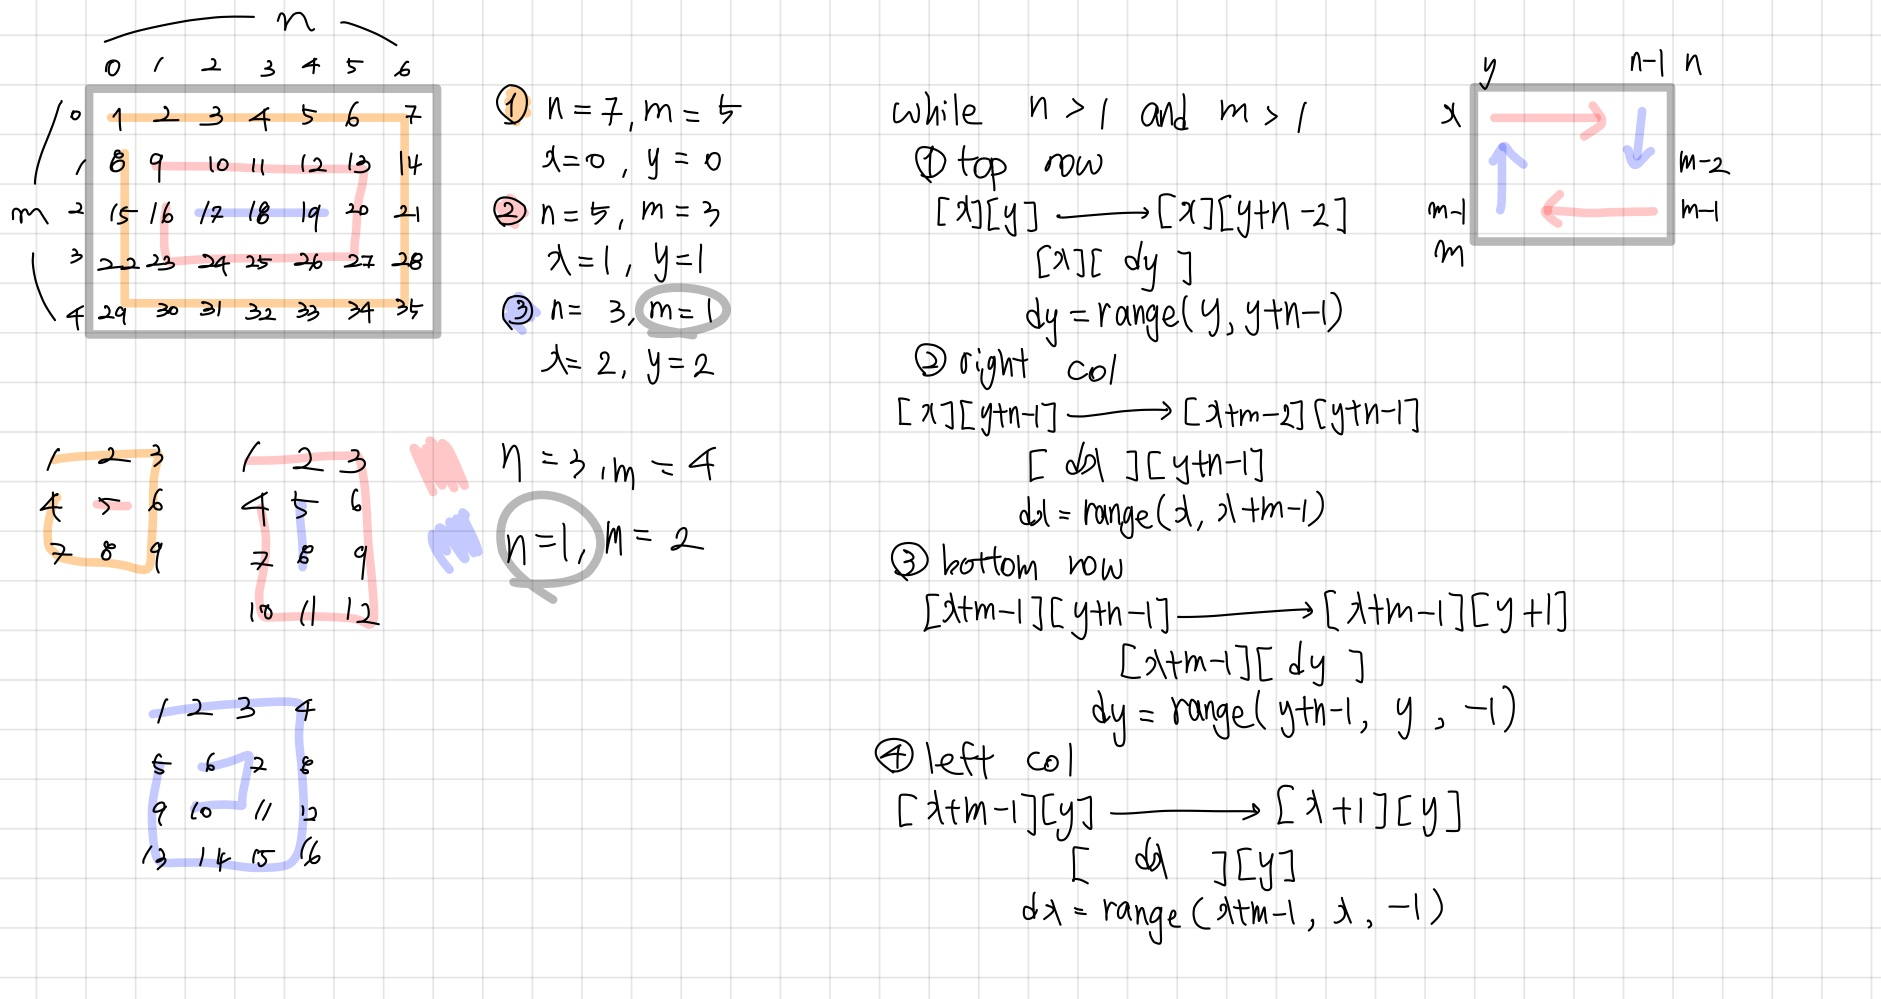 n
0 1 2 3 4 5 6
m
0 1 2 3 4 5 6 7
1 8 9 10 11 12 13 14
2 15 16 17 18 19 20 21
3 22 23 24 25 26 27 28
4 29 30 31 32 33 34 35
① n = 7, m = 5
x = 0, y = 0
② n = 5, m = 3
x = 1, y = 1
③ n = 3, m = 1
x = 2, y = 2
1 2 3
4 5 6
7 8 9
1 2 3
4 5 6
7 8 9
10 11 12
n = 3, m = 4
n = 1, m = 2
1 2 3 4
5 6 7 8
9 10 11 12
13 14 15 16
while n > 1 and m > 1
① top row
[x][y] → [x][y+n-2]
[x][ dy ]
dy = range(y, y+n-1)
② right col
[x][y+n-1] → [x+m-2][y+n-1]
[ dx ][y+n-1]
dx = range(x, x+m-1)
③ bottom row
[x+m-1][y+n-1] → [x+m-1][y+1]
[x+m-1][ dy ]
dy = range(y+n-1, y, -1)
④ left col
[x+m-1][y] → [x+1][y]
[ dx ][y]
dx = range(x+m-1, x, -1)
y n-1 n
x
m-2
m-1 m-1
m